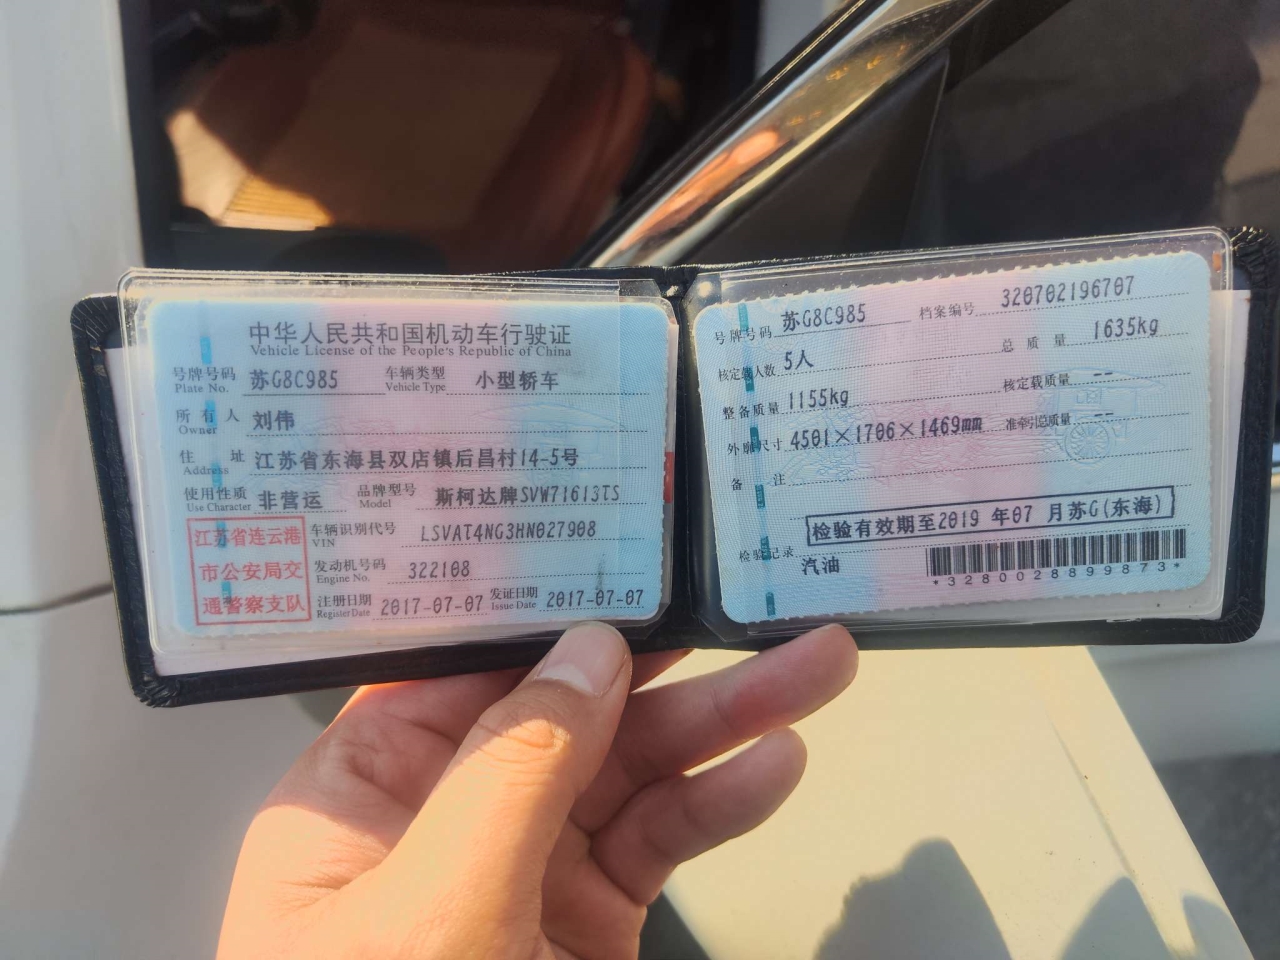 中华人民共和国机动车行驶证
Vehicle License of the People's Republic of China
号牌号码 苏G8C985 车辆类型 小型轿车
Plate No. Vehicle Type
所有人 刘伟
Owner
住址 江苏省东海县双店镇后昌村14-5号
Address
使用性质 非营运 品牌型号 斯柯达牌SVW71613TS
Use Character Model
江苏省连云港
市公安局交
通警察支队
车辆识别代号 LSVAT4NG3HN027908
VIN
发动机号码 322108
Engine No.
注册日期 2017-07-07 发证日期 2017-07-07
Register Date Issue Date
号牌号码 苏G8C985 档案编号 320702196707
核定载人数 5人 总质量 1635kg
整备质量 1155kg 核定载质量 --
外廓尺寸 4501×1706×1469mm 准牵引总质量 --
备注
检验有效期至2019 年07 月苏G(东海)
检验记录 汽油
*3280028899873*